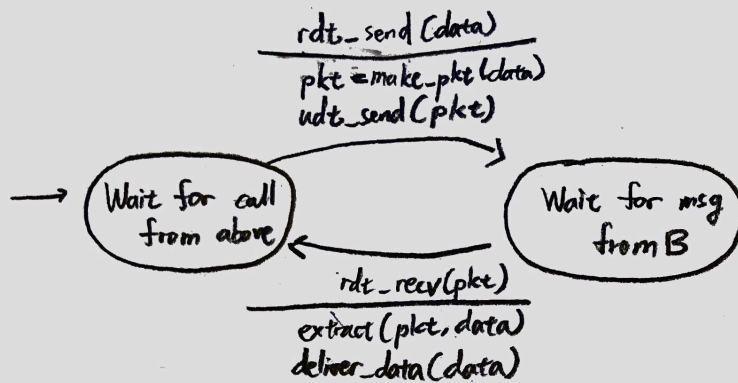 rdt_send(data)
pkt=make_pkt(data)
udt_send(pkt)
Wait for call
from above
Wait for msg
from B
rdt_recv(pkt)
extract(pkt, data)
deliver_data(data)